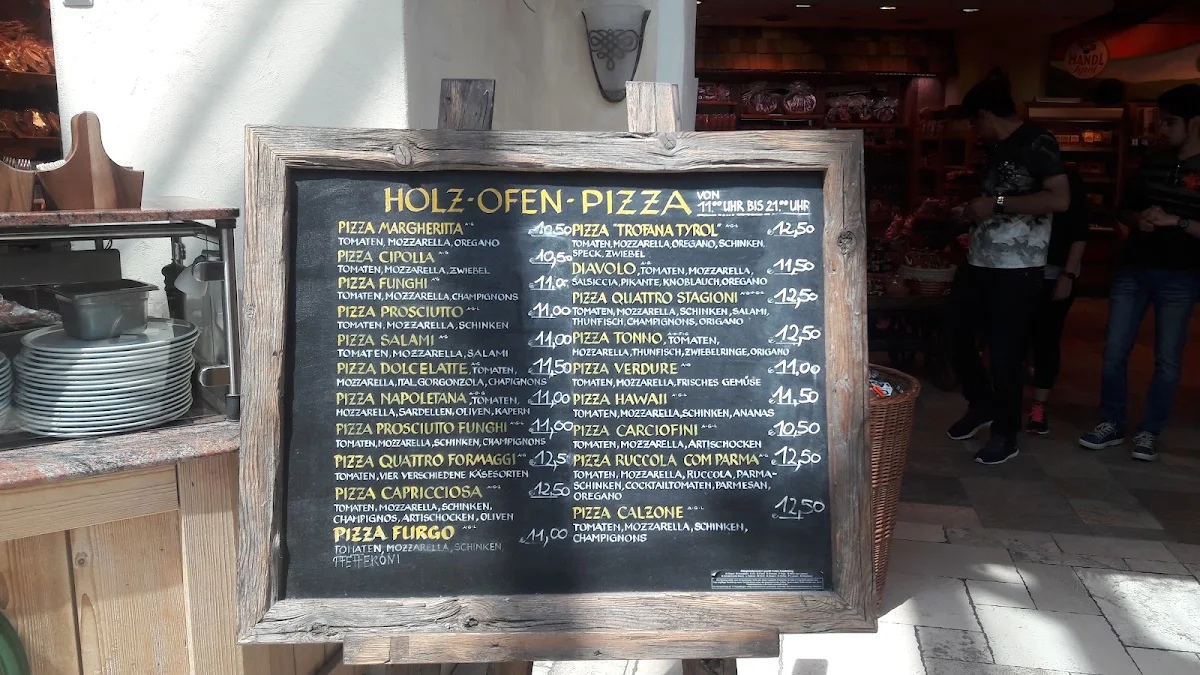 HANDL
HOLZ-OFEN-PIZZA VON 11.⁰⁰ UHR BIS 21.⁰⁰ UHR
PIZZA MARGHERITTA € 10,50
TOMATEN, MOZZARELLA, OREGANO
PIZZA CIPOLLA 10,50
TOMATEN, MOZZARELLA, ZWIEBEL
PIZZA FUNGHI € 11,00
TOMATEN, MOZZARELLA, CHAMPIGNONS
PIZZA PROSCIUTTO € 11,00
TOMATEN, MOZZARELLA, SCHINKEN
PIZZA SALAMI € 11,00
TOMATEN, MOZZARELLA, SALAMI
PIZZA DOLCELATTE, TOMATEN, € 11,50
MOZZARELLA, ITAL. GORGONZOLA, CHAPIGNONS
PIZZA NAPOLETANA, TOMATEN, € 11,00
MOZZARELLA, SARDELLEN, OLIVEN, KAPERN
PIZZA PROSCIUTTO FUNGHI € 11,00
TOMATEN, MOZZARELLA, SCHINKEN, CHAMPIGNONS
PIZZA QUATTRO FORMAGGI € 12,5
TOMATEN, VIER VERSCHIEDENE KÄSESORTEN
PIZZA CAPRICCIOSA € 12,50
TOMATEN, MOZZARELLA, SCHINKEN,
CHAMPIGNOS, ARTISCHOCKEN, OLIVEN
PIZZA FURGO € 11,00
TOMATEN, MOZZARELLA, SCHINKEN,
PFEFFERONI
PIZZA "TROFANA TYROL" € 12,50
TOMATEN, MOZZARELLA, OREGANO, SCHINKEN,
SPECK, ZWIEBEL
DIAVOLO, TOMATEN, MOZZARELLA, € 11,50
SALSICCIA, PIKANTE, KNOBLAUCH, OREGANO
PIZZA QUATTRO STAGIONI € 12,50
TOMATEN, MOZZARELLA, SCHINKEN, SALAMI,
THUNFISCH, CHAMPIGNONS, ORIGANO
PIZZA TONNO, TOMATEN, € 12,50
MOZZARELLA, THUNFISCH, ZWIEBELRINGE, ORIGANO
PIZZA VERDURE € 11,00
TOMATEN, MOZZARELLA, FRISCHES GEMÜSE
PIZZA HAWAII € 11,50
TOMATEN, MOZZARELLA, SCHINKEN, ANANAS
PIZZA CARCIOFINI € 10,50
TOMATEN, MOZZARELLA, ARTISCHOCKEN
PIZZA RUCCOLA COM PARMA € 12,50
TOMATEN, MOZZARELLA, RUCCOLA, PARMA-
SCHINKEN, COCKTAILTOMATEN, PARMESAN,
OREGANO
PIZZA CALZONE A-G-L € 12,50
TOMATEN, MOZZARELLA, SCHINKEN,
CHAMPIGNONS